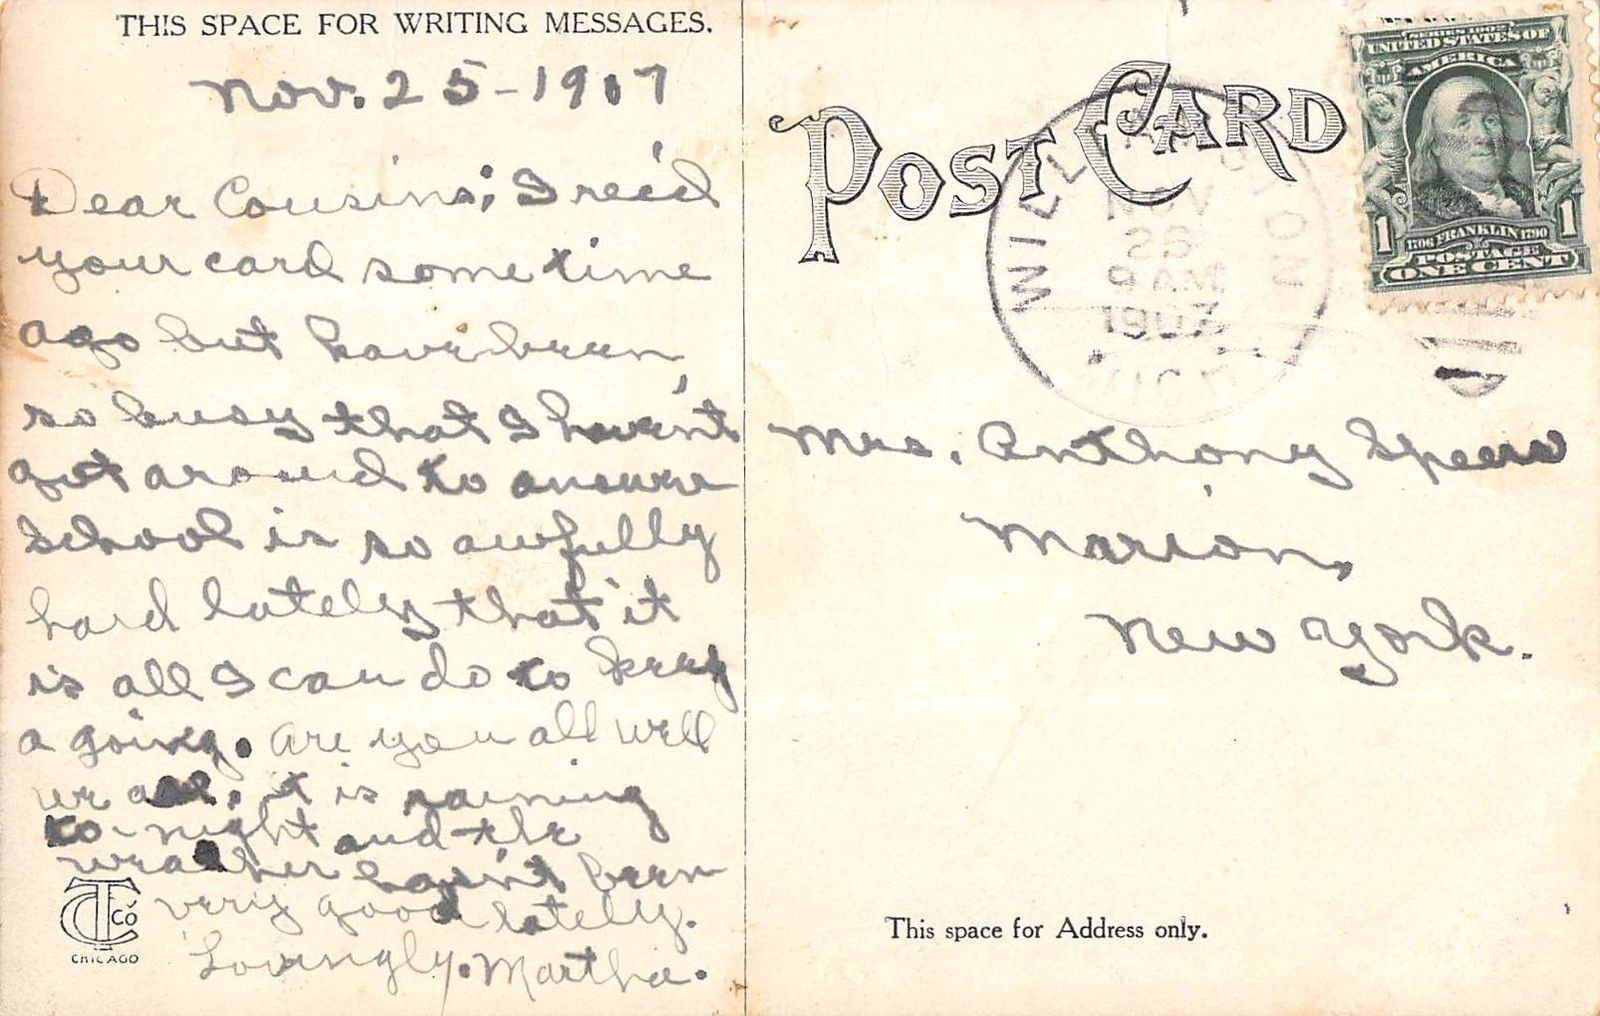 THIS SPACE FOR WRITING MESSAGES.
Nov. 25-1907
Dear Cousins; I rec'd
your card sometime
ago but have been,
so busy that I haven't
got around to answer
School is so awfully
hard lately that it
is all I can do to keep
a going. Are you all well
we all, it is raining
to-night and the
weather hasn't been
very good lately.
Lovingly. Martha.
TC Co
CHICAGO
POST CARD
WILLIAMSTON
NOV
26
9 AM
1907
MICH
SERIES 1902
UNITED STATES OF
AMERICA
1 1
1706 FRANKLIN 1790
POSTAGE
ONE CENT
Mrs. Anthony Speers
Marion,
New York.
This space for Address only.